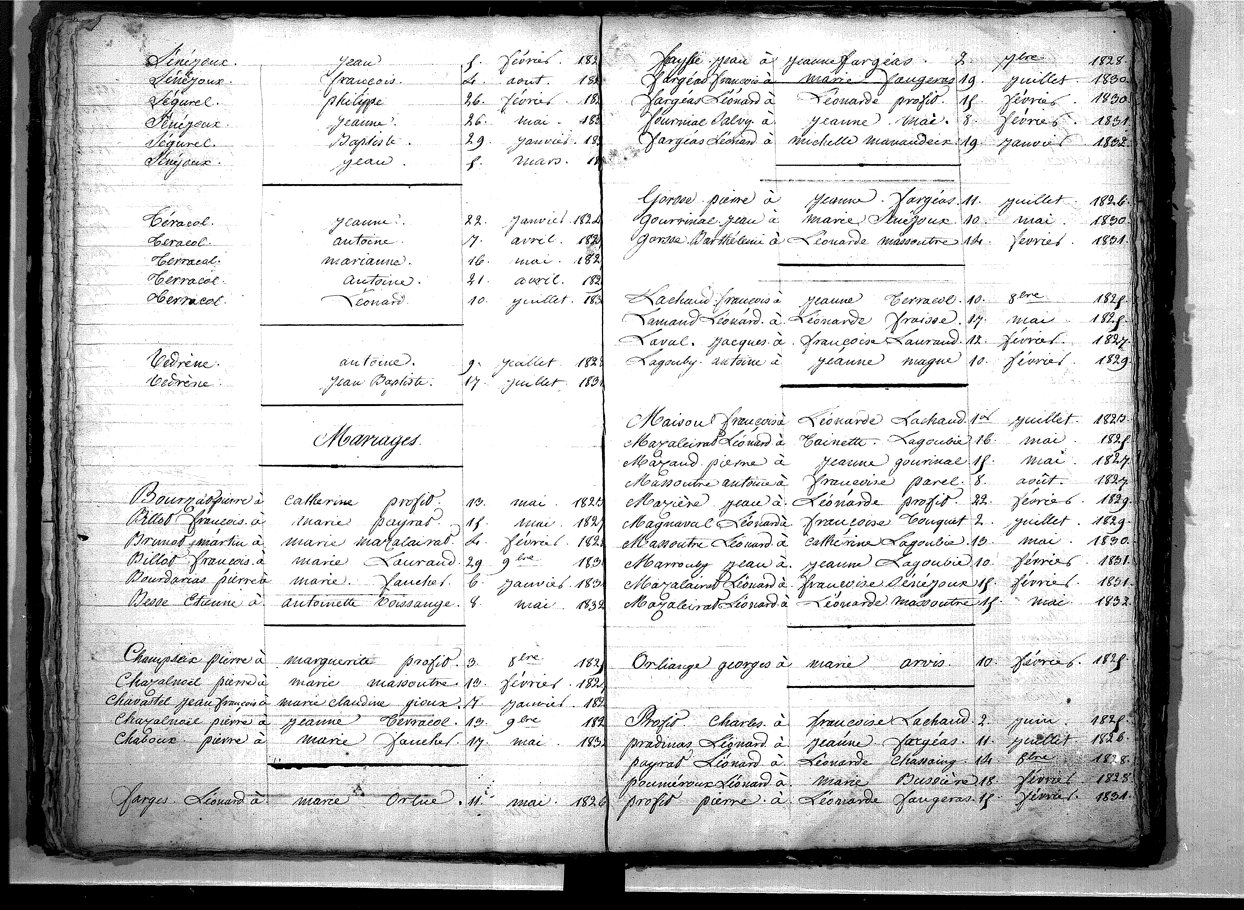 Sénéjoux. Jean 5. février. 182
Sénéjoux. françois. 4. aout. 182
Ségurel. philippe 26. février. 18
Sénéjoux. jeanne. 26. mai. 183
Ségurel. Baptiste. 29. janvier. 18
Sénéjoux. jean. 5. mars. 18
Téracol. jeanne. 22. janvier. 1824
Teracol. antoine. 7. avril. 182
Terracol. marianne. 16. mai. 182
Terracol. antoine. 21. avril. 182
Terracol. Léonard 10. juillet. 183
Vedrène. antoine. 9. juillet. 182
Vedrène. jean Baptiste. 17. juillet. 183
Mariages.
pierre à catherine profit. 13. mai. 1823
Billot françois. à marie payrat. 15. mai. 182
Brunot martin à marie mazalairat. 4. février. 182
Billot françois. à marie Lauraud. 29. 9bre 183
Bourdarias pierre à marie. faucher. 6. janvier. 183
Besse Etienne à antoinette Toissange. 8. mai. 1832
Champseix pierre à marguerite profit. 3. 8bre 182
Chazalnoël pierre à marie massoutre. 13. février. 182
Chavastel jean françois à marie claudine gioux. 7. janvier. 182
Chazalnoël pierre à jeanne Terracol. 13. 9bre 182
Chaboux pierre à marie faucher. 17. mai. 183
farges. Léonard à marie Ortue. 11. mai. 1826
jean à jeanne fargéas. 2. 7bre 1828.
fargéas françois à marie faugeras 19. juillet 1830
fargéas Léonard à Léonarde profit. 15. février. 1830
fourniac Salvy. à jeanne mai. 8. février. 1831
fargéas Léonard à michelle manaudeix. 19. janvier 1832.
Gorsse pierre à jeanne fargéas. 11. juillet. 1826.
gourrinal jean à marie Sénéjoux 10. mai. 1830.
gorsse Barthélemi à Léonarde massoutre 14. février. 1831.
Lachaud françois à jeanne Terracol. 10. 8bre 1825.
Lamaud Léonard. à Léonarde fraisse. 17. mai. 1825.
Laval. jacques à françoise Lauraud. 12. février. 1827.
Lagouby antoine à jeanne magne 10. février. 1829
françois à Léonarde Lachaud. 1er juillet. 1823.
Mazaleirat Léonard à Toinette. Lagoubie 16. mai. 1825
Mazaud pierre à jeanne gourinal 15. mai. 1827.
Massoutre antoine à françoise parel. 8. août. 1827.
Mazière jean à Léonarde profit. 22. février. 1829.
Magnaval Léonard à françoise 2. juillet. 1829.
Massoutre Léonard à cathérine Lagoubie 13. mai. 1830.
Marrouby jean à jeanne Lagoubie 10. février. 1831.
Mazalairat Léonard à françoise Sénéjoux 15. février. 1831.
Mazaleirat Léonard à Léonarde massoutre 15. mai. 1832.
Orliange georges à marie arvis. 10. février. 1825.
Profit Charles. à françoise Lachaud. 2. juin. 1825.
pradinas Léonard à jeanne fargéas. 11. juillet 1826.
payrat Léonard à Léonarde Chassaing. 14. 8bre 1828.
pouméroux Léonard à marie Bussière 18. février 1828.
profit pierre. à Léonarde faugeras. 15. février. 1831.